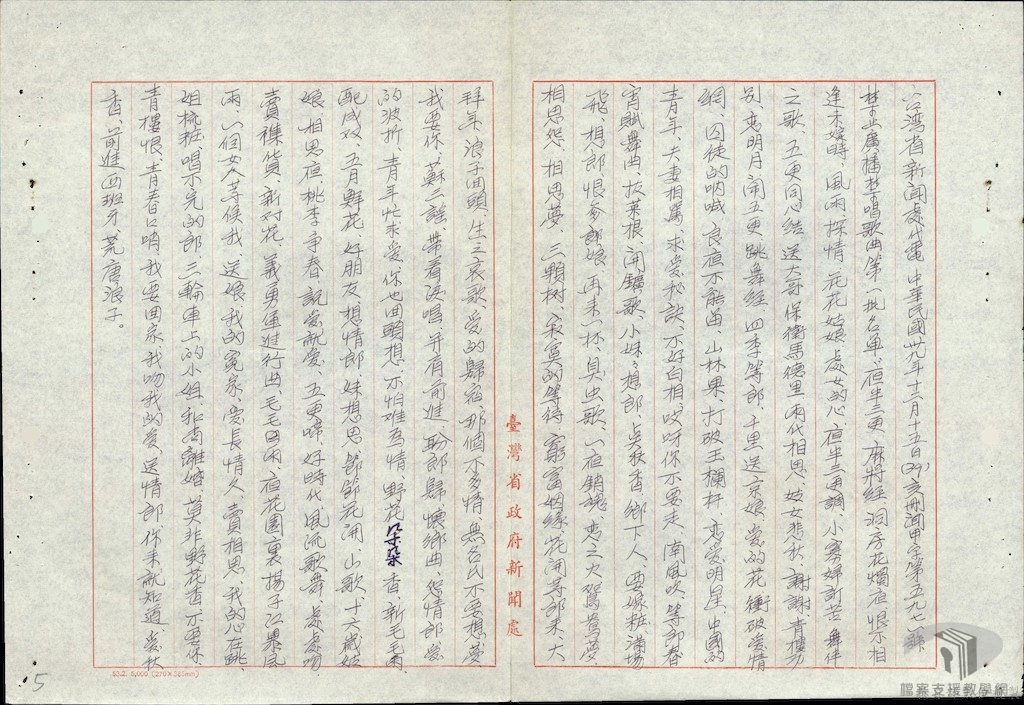 八、台湾省新聞處代電 中華民國卅九年十二月十五日(39)亥刪新甲字第五九七一號
禁止廣播禁唱歌曲第一批名单：夜半三更、麻将經、洞房花燭夜、恨不相
逢未嫁時、風雨探情、花花姑娘、處女的心、夜半三更調、小寡婦訴苦、舞伴
之歌、五更同心结、送大哥、保衛馬德里、兩代相思、妓女悲秋、謝謝、青樓功
别、恋明月、闹五更、跳舞經、四季等郎、千里送京娘、爱的花、衝破爱情
網、囚徒的呐喊、良夜不能留、山林果、打破玉欄杆、恋爱明星、中國的
青年、夫妻相罵、求爱秘訣、不好白相、哎呀你不要走、南風吹、等郎春
宵、賦舞曲、拔菜根、開鑛歌、小妹妹想郎、点秋香、鄉下人、要嫁粧、满場
飛、想郎、恨爹郎娘、再来一杯、臭虫歌、一夜銷魂、恋之火、鴛鴦夢
相思怨、相思夢、三顆树、寂寞的等待、窮富姻缘、花開等郎来、大
臺灣省政府新聞處
拜年、浪子回頭、人生之哀歌、爱的歸宿、那個不多情、無名氏、不要想、夢
我要你、蘇三謠、带着淚唱、并肩前進、盼郎歸、懷鄉曲、怨情郎、爱
的波折、青年忙求爱、你也回頭想、不怕难為情、野花朵朵香、新毛毛雨
配成双、五月鲜花、好朋友、想情郎、妹想思、節節花開、山歌、十六歲姑
娘、相思夜、桃李争春、說爱就爱、五更啼、好時代、風流歌舞、處處吻
賣襍貨、新对花、義勇軍進行曲、毛毛雨、夜花園裏、揚子江暴風
雨、一個女人等候我、送娘、我的冤家、爱長情久、賣相思、我的心在跳、
姐梳粧、唱不完的郎、三輪車上的小姐、和尚離婚、莫非野花香、不要你、
青樓恨、青春口哨、我要回家、我吻我的爱、送情郎、你来就知道、爱秋
香、前進西班牙、荒唐浪子。
52.2. 5,000 (270×381mm)
5
檔案支援教學網